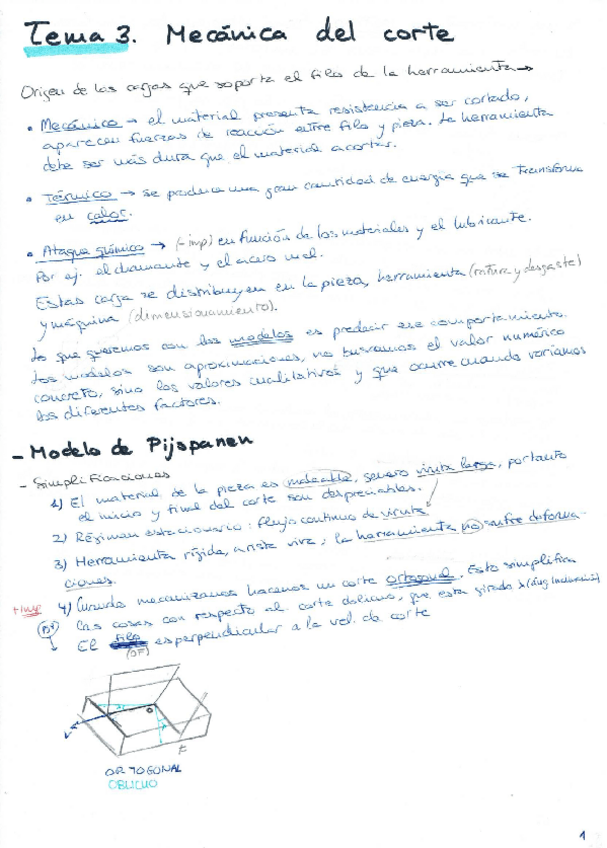 Tema 3. Mecánica del corte
Origen de las cargas que soporta el filo de la herramienta →
• Mecánico → el material presenta resistencia a ser cortado,
aparecen fuerzas de reacción entre filo y pieza. La herramienta
debe ser más dura que el material a cortar.
• Térmico → se produce una gran cantidad de energía que se transforma
en calor.
• Ataque químico → (- imp) en función de los materiales y el lubricante.
Por ej: el diamante y el acero mal.
Estas carga se distribuyen en la pieza, herramienta (rotura y desgaste)
y máquina (dimensionamiento).
Lo que queremos con los modelos es predecir ese comportamiento.
Los modelos son aproximaciones, no buscamos el valor numérico
concreto, sino los valores cualitativos y que ocurre cuando variamos
los diferentes factores.
- Modelo de Pijspanen
- Simplificaciones
1) El material de la pieza es maleable, genero viruta larga, portanto
el inicio y final del corte son despreciables.
2) Régimen estacionario: flujo continuo de viruta
3) Herramienta rígida, arista viva; la herramienta no sufre deforma-
ciones.
+imp 4) Cuando mecanizamos hacemos un corte ortogonal. Esto simplifica
las cosas con respecto al corte oblicuo, que esta girado λ (áng inclinación)
El filo es perpendicular a la vel. de corte
(OF)
v
t
ORTOGONAL
OBLICUO
1